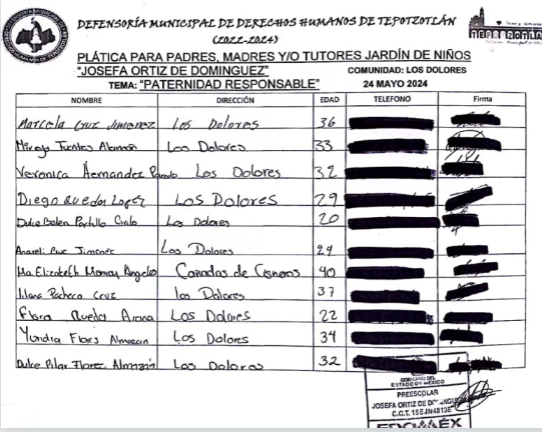 DEFENSORÍA MUNICIPAL DE DERECHOS HUMANOS DE TEPOTZOTLÁN
(2022-2024)
PLÁTICA PARA PADRES, MADRES Y/O TUTORES JARDÍN DE NIÑOS
"JOSEFA ORTIZ DE DOMINGUEZ" COMUNIDAD: LOS DOLORES
TEMA: "PATERNIDAD RESPONSABLE" 24 MAYO 2024
NOMBRE DIRECCIÓN EDAD TELEFONO Firma
Marcela Cruz Jimenez Los Dolores 36
Fuentes Los Dolores 33
Veronica Hernandez Los Dolores 32
Diego Rueda Lopez Los Dolores 29
Dulce Belen Portillo Los Dolores 20
Cruz Jimenez Los Dolores 29
Ma Elizabeth Angeles Cañadas de Cisneros 40
Pacheco Cruz los Dolores 37
Flora Rueda Arana Los Dolores 22
Flores Almazan Los Dolores 34
Dulce Pilar Florez Almazán Los Dolores 32
GOBIERNO DEL
ESTADO DE MÉXICO
PREESCOLAR
JOSEFA ORTIZ DE
C.C.T. 15EJN4513E
EDOMÉX